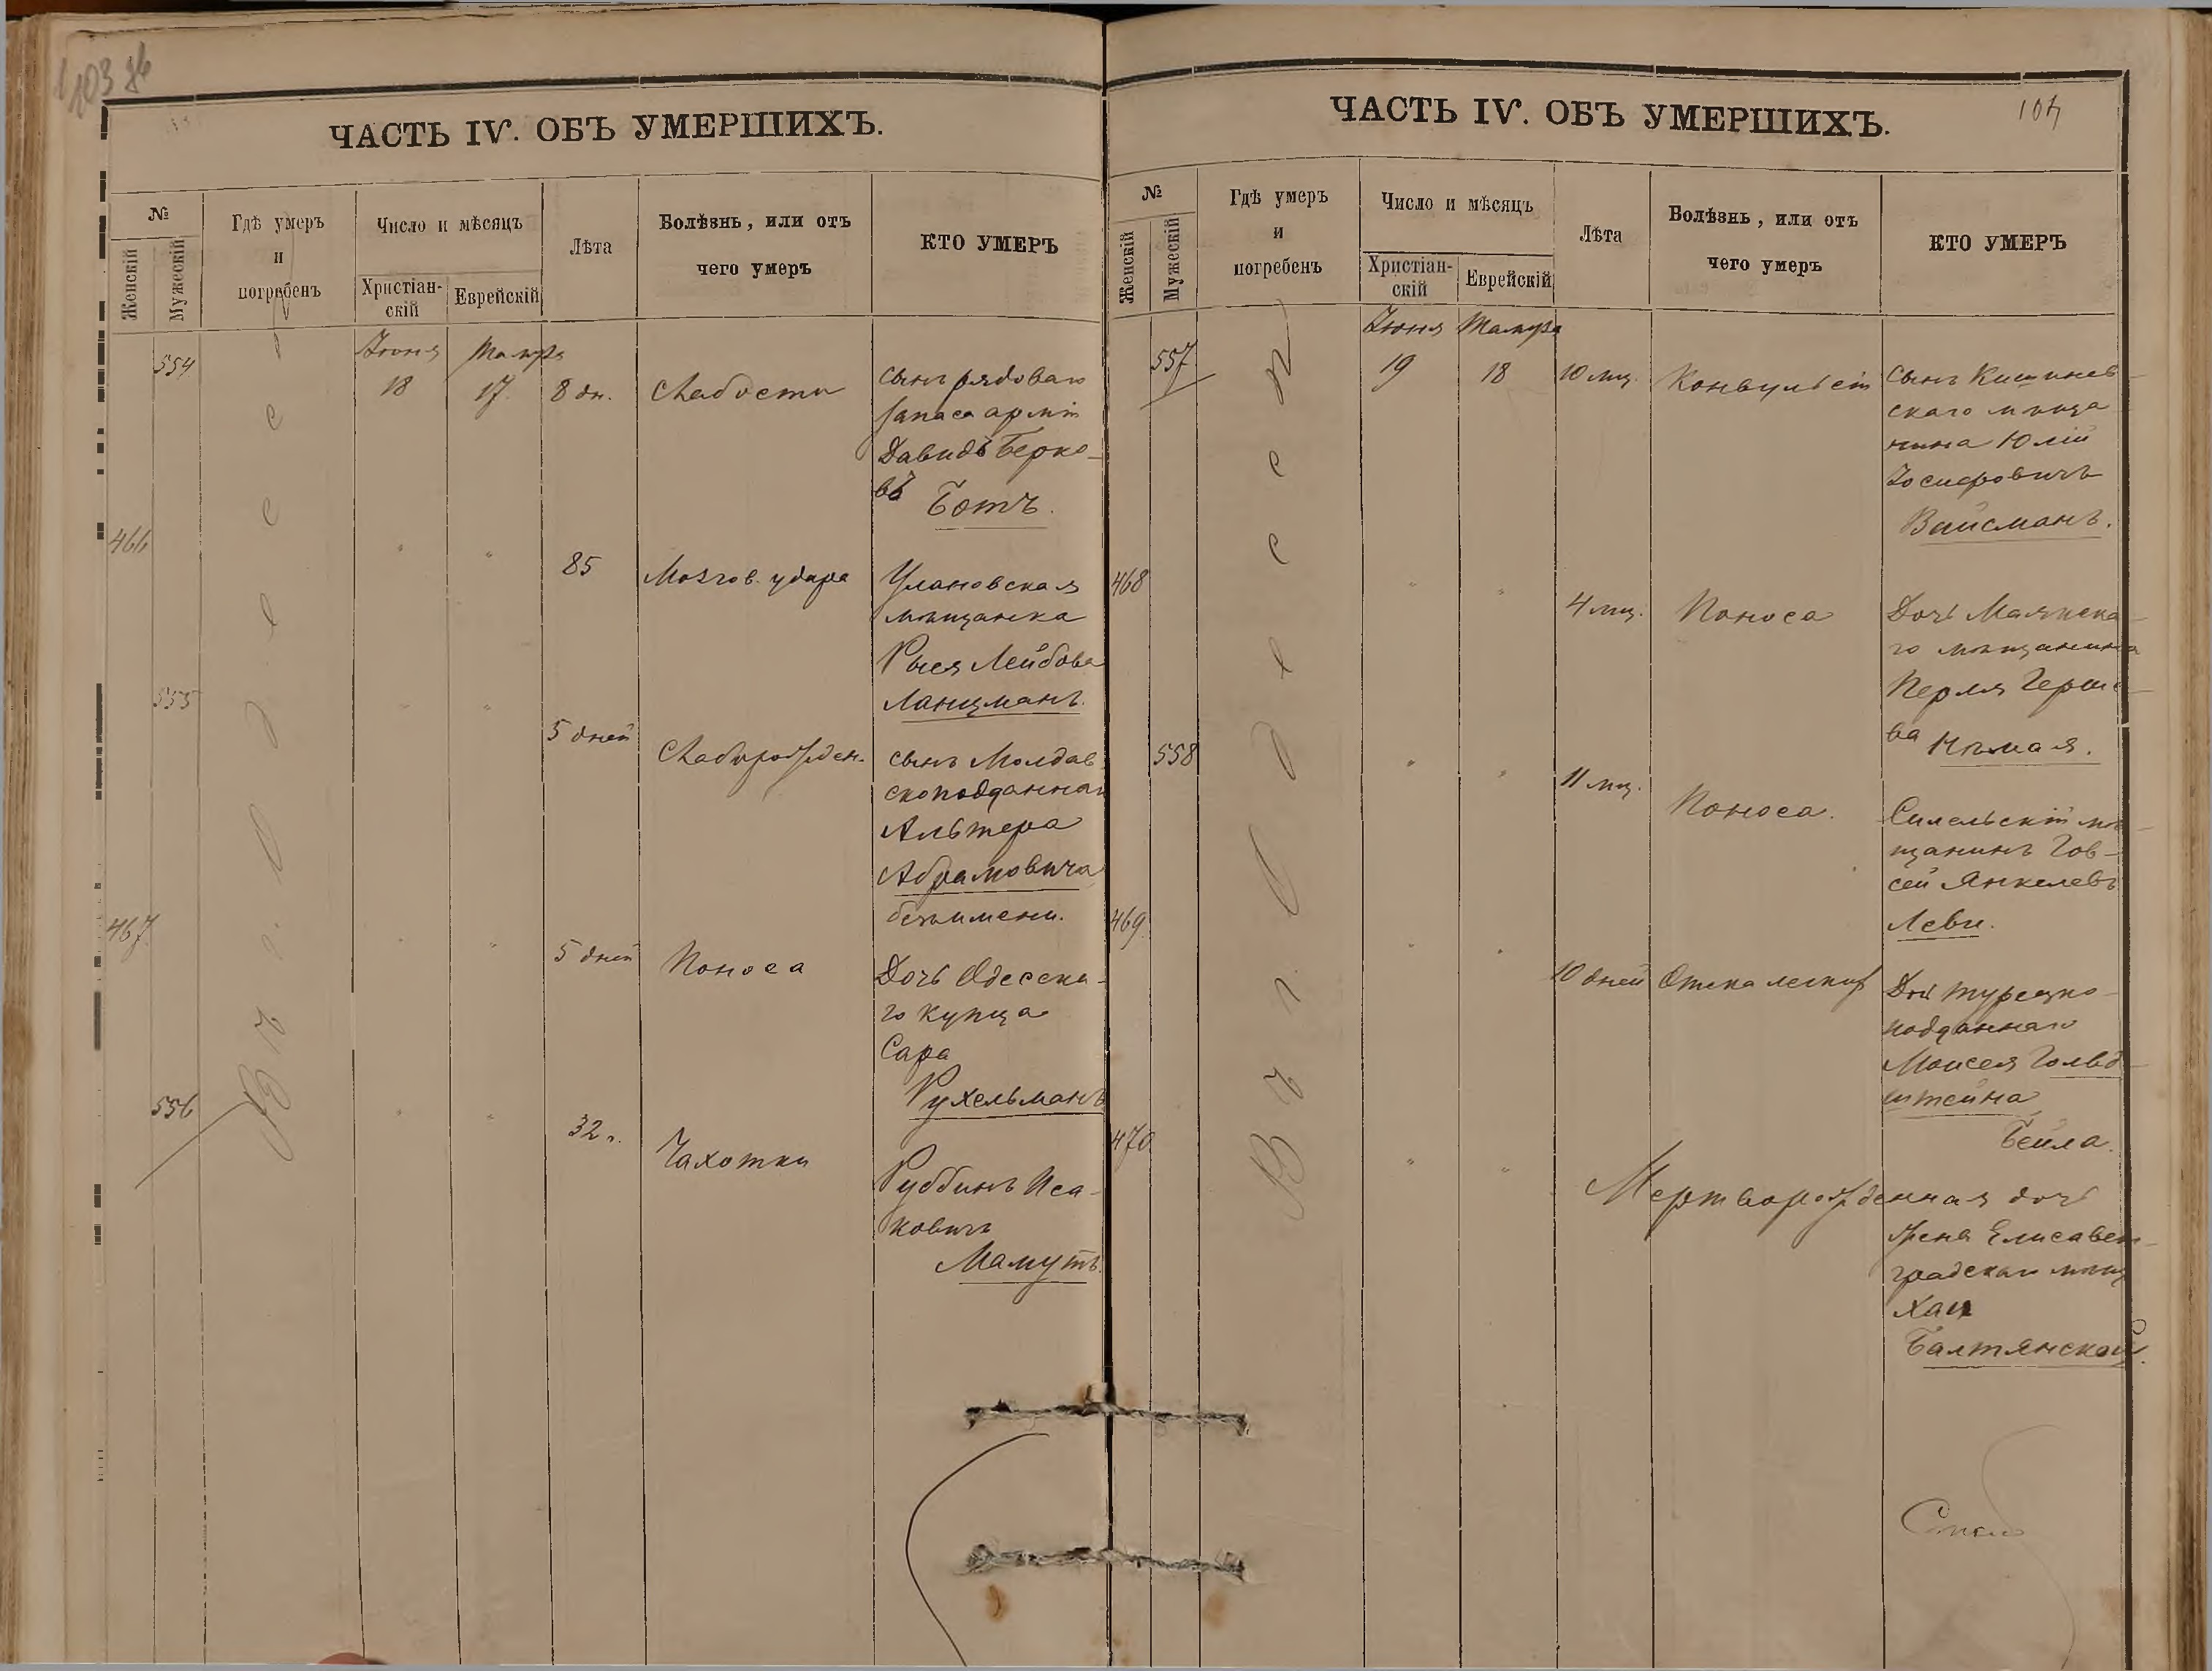 103
ЧАСТЬ IV. ОБЪ УМЕРШИХЪ.
№
Женскій
Мужескій
Гдѣ умеръ
и
погребенъ
Число и мѣсяцъ
Христіан-
скій
Еврейскій
Лѣта
Болѣзнь, или отъ
чего умеръ
КТО УМЕРЪ
Въ г. Одессѣ
Іюня Тамуза
554 18 17. 8 дн. Слабости сынъ рядоваго
запаса арміи
Давидъ Берко-
въ
Ботъ.
466 " " 85 Мозгов. удара Улановская
мѣщанка
Рыся Лейбова
Ланцманъ.
555 " " 5 дней Слаборожден. сынъ Молдав
скоподданнаг
Альтера
Абрамовича
безъимени.
467. " " 5 дней Поноса Дочь Одесска-
го купца
Сара
Рухельманъ
556 " " 32 г. Чахотки Руббинъ Иса-
ковичъ
Мамутъ.
ЧАСТЬ IV. ОБЪ УМЕРШИХЪ.
104
№
Женскій
Мужескій
Гдѣ умеръ
и
погребенъ
Число и мѣсяцъ
Христіан-
скій
Еврейскій
Лѣта
Болѣзнь, или отъ
чего умеръ
КТО УМЕРЪ
Въ г. Одессѣ
Іюня Тамуза
557 19 18 10 мц. Конвульсіи сынъ Кишинев-
скаго мѣща
нина Юлій
Іосифовичъ
Вайсманъ.
468 " " 4 мц. Поноса Дочь Маякска-
го мѣщанина
Перля Герше-
ва Нѣмая.
558 " " 11 мц. Поноса. мѣ-
щанинъ Гов-
сей Янкелевъ
Леви.
469 " " 10 дней Отека легкихъ Дочь турецко-
подданнаго
Моисея Гольд-
штейна
Бейла.
470 " " Мертворожденная дочь
жены Елисавет-
градскаго мѣщ
Хаи
Балтянской.